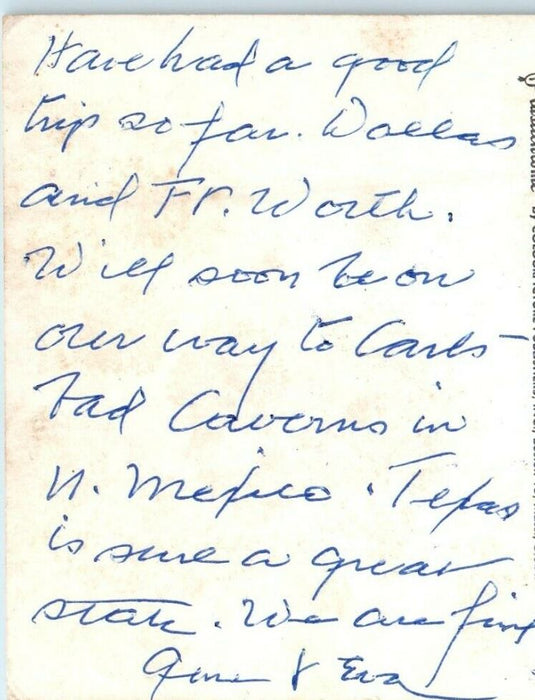 Have had a good
trip so far. Dallas
and Ft. Worth.
Will soon be on
our way to Carls-
bad Caverns in
N. Mexico. Texas
is sure a great
state. We are fine
Gene & Eva